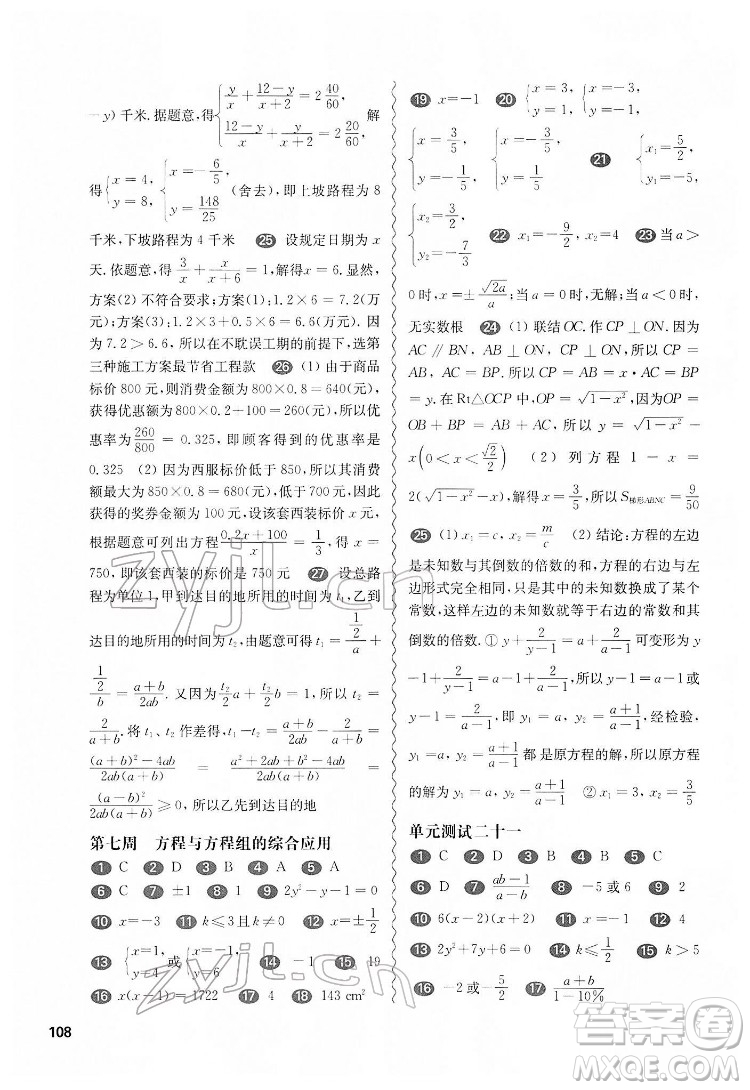 一y)千米.据题意,得{y/x+(12-y)/(x+2)=2 40/60, (12-y)/x+y/(x+2)=2 20/60, 解
得{x=4, y=8, {x=-6/5, y=148/25 (舍去),即上坡路程为 8
千米,下坡路程为 4 千米 25 设规定日期为 x
天.依题意,得 3/x+x/(x+6)=1,解得 x=6.显然,
方案(2) 不符合要求;方案(1):1.2×6=7.2(万
元);方案(3):1.2×3+0.5×6=6.6(万元).因为
7.2>6.6,所以在不耽误工期的前提下,选第
三种施工方案最节省工程款 26 (1) 由于商品
标价 800 元,则消费金额为 800×0.8=640(元),
获得优惠额为 800×0.2+100=260(元),所以优
惠率为 260/800=0.325,即顾客得到的优惠率是
0.325 (2) 因为西服标价低于 850,所以其消费
额最大为 850×0.8=680(元),低于 700 元,因此
获得的奖券金额为 100 元,设该套西装标价 x 元,
根据题意可列出方程 (0.2x+100)/x=1/3,解得 x=
750,即该套西装的标价是 750 元 27 设总路
程为单位 1,甲到达目的地所用的时间为 t₁,乙到
达目的地所用的时间为 t₂,由题意可得 t₁=(1/2)/a+
(1/2)/b=(a+b)/2ab.又因为 t₂/2 a+t₂/2 b=1,所以 t₂=
2/(a+b).将 t₁、t₂ 作差得,t₁-t₂=(a+b)/2ab-2/(a+b)=
((a+b)²-4ab)/2ab(a+b)=(a²+2ab+b²-4ab)/2ab(a+b)=
(a-b)²/2ab(a+b)≥0,所以乙先到达目的地
第七周 方程与方程组的综合应用
1 C 2 D 3 D 4 A 5 A
6 C 7 ±1 8 1 9 2y²-y-1=0
10 x=-3 11 k≤3且k≠0 12 x=±1/2
13 {x=1, y=4 或{x=-1, y=6 14 -1 15 19
16 x(x-1)=1722 17 0 18 143 cm²
108
19 x=-1 20 {x=3, y=1, {x=-3, y=1,
{x=3/5, y=1, {x=-3/5, y=1 21 {x₁=5/2, y₁=7,
{x₂=-3, y₂=-7/3 22 x₁=-9/2,x₂=4 23 当 a>
0 时,x=±√2a/a;当 a=0 时,无解;当 a<0 时,
无实数根 24 (1) 联结 OC.作 CP⊥ON.因为
AC∥BN,AB⊥ON,所以 AB=CP=x·AC=BP
=y.在 Rt△OCP 中,OP=√(1-x²),因为OP=
OB+BP=AB+AC=x+y,所以 y=√(1-x²)-
x(0<x<√2/2) (2) 列方程 1-x=
2(√(1-x²)-x),解得 x=3/5,所以 S梯形ABNC=9/50
25 (1) x₁=c,x₂=m/c (2) 结论:方程的左边
是未知数与其倒数的倍数的和,方程的右边与左
边形式完全相同,只是其中的未知数换成了某个
常数,这样左边的未知数就等于右边的常数和其
倒数的倍数.① y+2/(y-1)=a+2/(a-1)可变形为 y
-1+2/(y-1)=a-1+2/(a-1),所以 y-1=a-1
或 y-1=2/(a-1),即 y₁=a,y₂=(a+1)/(a-1),经检验,
y₁=a、y₂=(a+1)/(a-1) 都是原方程的解,所以原方程
的解为 y₁=a,y₂=(a+1)/(a-1) ② x₁=3,x₂=2
单元测试二十一
1 C 2 A 3 B 4 B 5 C
6 D 7 (ab-1)/(a-b) 8 -5或6 9 5
10 6(x-2)(x+2) 11 -1 12 4
13 2y²+7y+6=0 14 k≤1/2 15 k>5
16 -2或-5 17 (a+b)/(1-10%)
zyjl.cn
zyjl.cn
答案卷
MXQE.COM